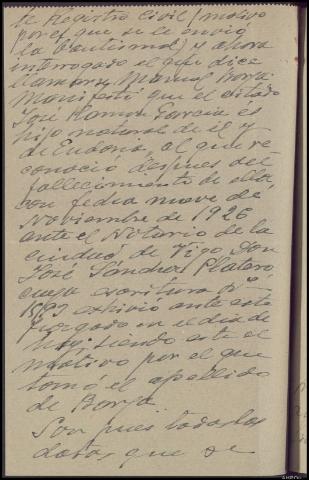 te Registro Civil (motivo
por el que se le envió
la bautismal) y ahora
interrogado el que dice
llamarse Manuel Borja
Manifestó que el citado
José Ramon García és
hijo natural de él y
de Eudosia, al que re
conoció despues del
fallecimiento de ella,
con fecha nueve de
Noviembre de 1926
ante el Notario de la
ciudad de Vigo Don
José Sánchez Platero,
cuya escritura nº
exhivió ante este
Juzgado en el dia de
hoy; siendo este el
motivo por el que
tomó el apellido
de Borja.
Son pues todos los
datos que se